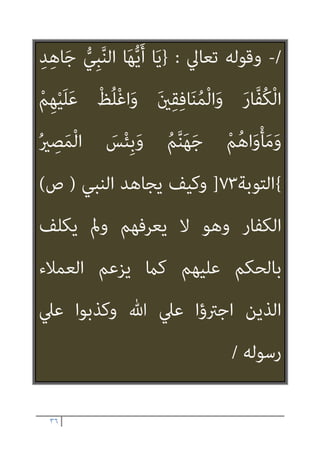 /- وقوله تعالي : {يَا أَيُّهَا النَّبِيُّ جَاهِدِ
الْكُفَّارَ وَالْمُنَافِقِينَ وَاغْلُظْ عَلَيْهِمْ
وَمَأْوَاهُمْ جَهَنَّمُ وَبِئْسَ الْمَصِيرُ
{التوبة٧٣[ وكيف يجاهد النبي ( ص)
الكفار وهو لا يعرفهم ولم يكلف
بالحكم عليهم كما يزعم العملاء
الذين اجترؤا علي الله وكذبوا علي
رسوله /
٣٦